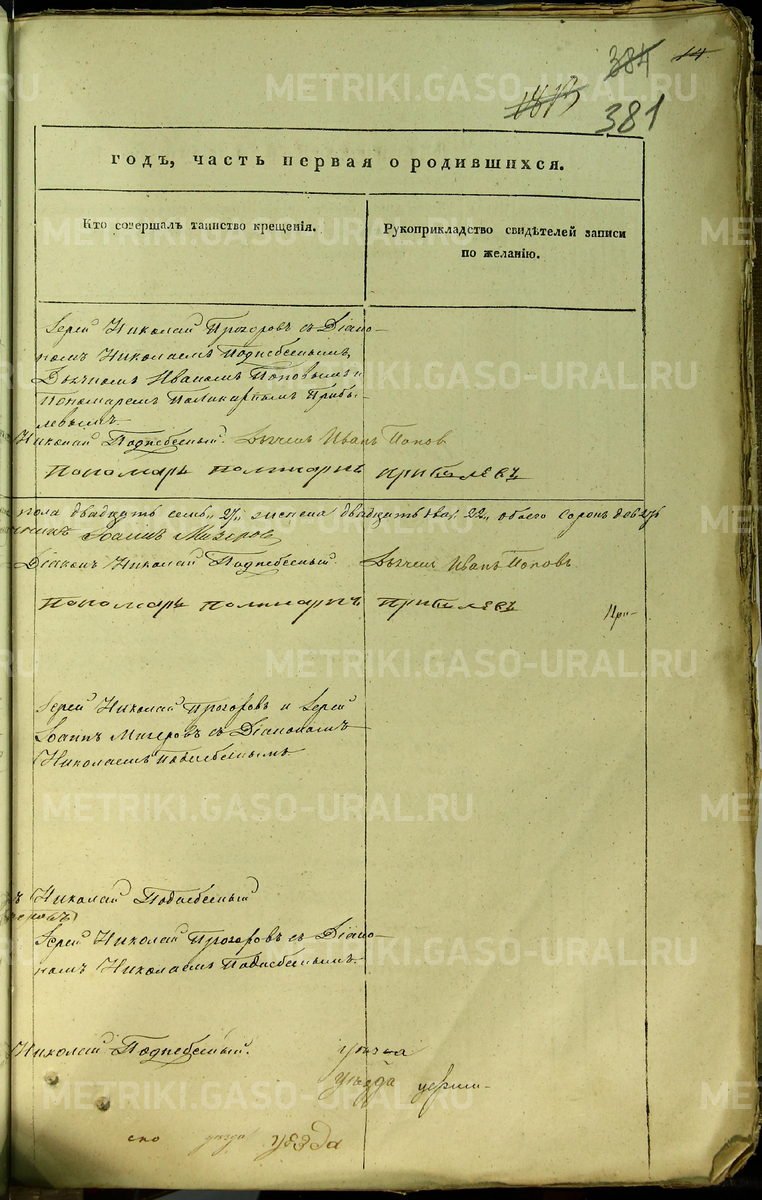 384 14
1813
381
годъ, часть первая о родившихся.
Кто совершалъ таинство крещенія.
Рукоприкладство свидѣтелей записи
по желанію.
Іерей Николай Прозоровъ съ Діако-
номъ Николаемъ Поднебеснымъ,
Дьячкомъ Иваномъ Поповымъ и
Пономаремъ Поликарпомъ Прибы-
левымъ.
Николай Поднебесный. Дьячекъ Иванъ Попов
Пономарь Поликарпъ Прибылевъ
пола двадцать семь, 27,, женска двадцать два, 22,, обоего сорокъ девять
Іоаннъ Мизеровъ
Діаконъ Николай Поднебесный. Дьячекъ Иванъ Поповъ
Пономарь Поликарпъ Прибылевъ
При-
Іерей Николай Прозоровъ и Іерей
Іоаннъ Мизеровъ съ Діакономъ
Николаемъ Поднебеснымъ
ъ Николай Поднебесный
Іерей Николай Прозоровъ съ Діако-
номъ Николаемъ Поднебеснымъ.
Николай Поднебесный.
уѣзда
ско уѣзда уезда
METRIKI.GASO-URAL.RU